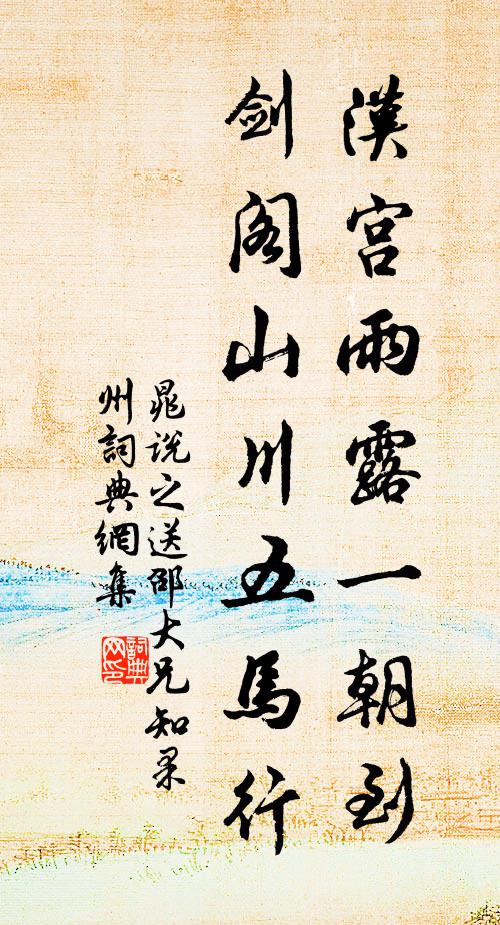 漢宮雨露一朝到
剑阁山川五馬行
晁说之送邵大兄知果
州詞典網集
詞典网印